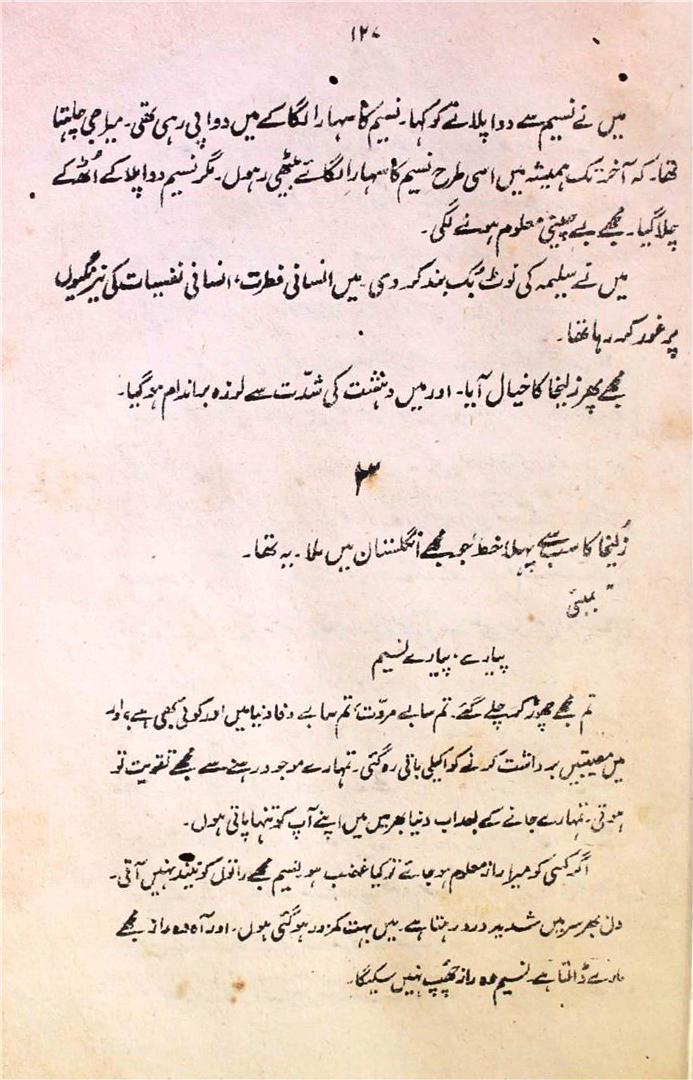 ۱۲۷
میں نے نسیم سے دوا پلانے کو کہا۔ نسیم کا سہارا لگا کے میں دوا پی رہی تھی۔ میرا جی چاہتا
تھا۔ کہ آخر تک ہمیشہ میں اسی طرح نسیم کا سہارا لگائے بیٹھی رہوں۔ مگر نسیم دوا پلا کے اُٹھ کے
چلا گیا۔ مجھے بے چینی معلوم ہونے لگی۔
میں نے سلیمہ کی نوٹ بُک بند کر دی۔ میں انسانی فطرت، انسانی نفسیات کی نیرنگیوں
پر غور کر رہا تھا۔
مجھے پھر زلیخا کا خیال آیا۔ اور میں دہشت کی شدّت سے لرزہ براندام ہو گیا۔
۳
زُلیخا کا سب سے پہلا خط جو مجھے انگلستان میں ملا۔ یہ تھا۔
"بمبئی
پیارے۔ پیارے نسیم
تم مجھے چھوڑ کر چلے گئے۔ تم سا بے مروّت، تم سا بے وفا دنیا میں اور کوئی بھی ہے، اور
میں مصیبتیں برداشت کرنے کو اکیلی باقی رہ گئی۔ تمہارے موجود رہنے سے مجھے تقویت تو
ہوتی۔ تمہارے جانے کے بعد اب دنیا بھر میں میں اپنے آپ کو تنہا پاتی ہوں۔
اگر کسی کو میرا راز معلوم ہو جائے تو کیا غضب ہو۔ نسیم مجھے راتوں کو نیند نہیں آتی۔
دن بھر سر میں شدید درد رہتا ہے۔ میں بہت کمزور ہو گئی ہوں۔ اور آہ وہ راز مجھے
مارے ڈالتا ہے۔ نسیم وہ راز چھپ نہیں سکیگا۔